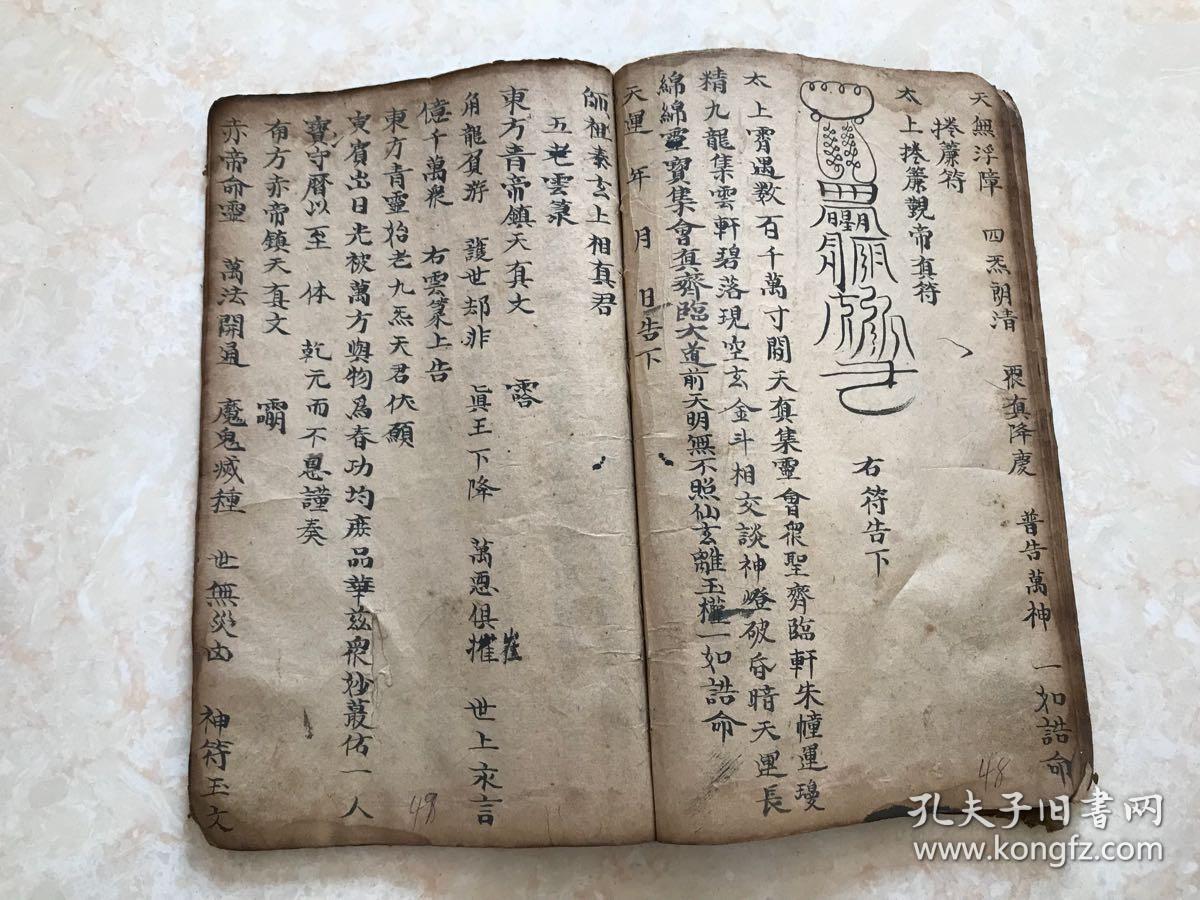 天無浮障 四炁朗清 眾真降慶 普告萬神 一如誥命
捲簾符
太上捲簾觀帝真符
右符告下
太上霄遇数百千萬寸間天真集靈會眾聖齊臨軒朱幢運瓊
精九龍集雲軒碧落現空玄金斗相交談神燈破昏暗天運長
綿綿靈寶集會真齊臨大道前天明無不照仙玄離玉權一如誥命
天運 年 月 日告下
師祖泰玄上相真君
五老雲篆
東方青帝鎮天真文
角龍負游 護世却非 眞王下降 萬惡俱摧 世上永言
崔
億千萬眾 右雲篆上告
東方青靈始老九炁天君伏願
寅賓出日光被萬方與物為春功均庶品華兹眾妙蕞佑一人
寶守曆以至 体 乾元而不息謹奏
南方赤帝鎮天真文
赤帝命靈 萬法開通 魔鬼滅種 世無災凶 神符玉文
48
49
孔夫子旧书网
www.kongfz.com